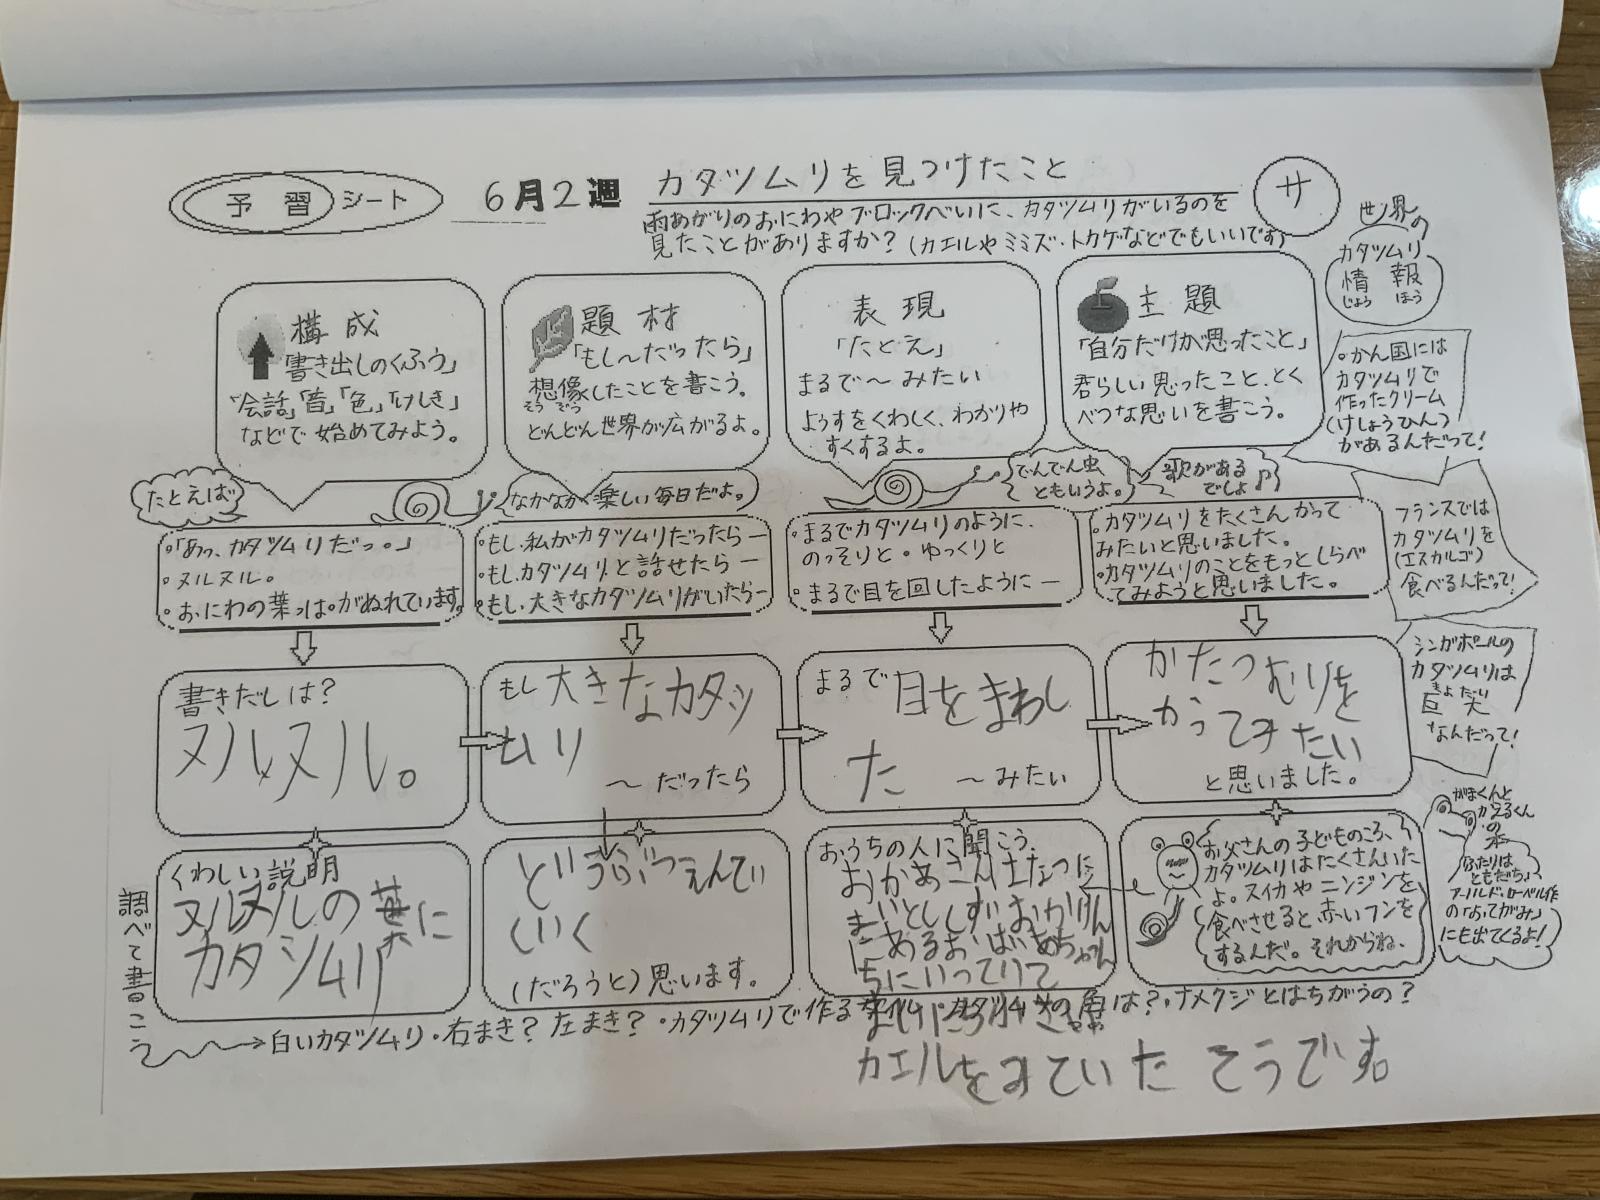 予習シート
6月2週
カタツムリを見つけたこと
サ
雨あがりのおにわやブロックべいに、カタツムリがいるのを
見たことがありますか？(カエルやミミズ・トカゲなどでもいいです)
世界の
カタツムリ
情報
じょう ほう
構成
「書き出しのくふう」
「会話」「音」「色」「けしき」
などで始めてみよう。
題材
「もし〜だったら」
想像したことを書こう。
そう ぞう
どんどん世界が広がるよ。
表現
「たとえ」
まるで〜みたい
ようすをくわしく、わかりや
すくするよ。
主題
「自分だけが思ったこと」
君らしい思ったこと、とく
べつな思いを書こう。
・かん国には
カタツムリで
作ったクリーム
(けしょうひん)
があるんだって！
たとえば
なかなか楽しい毎日だよ。
でんでん虫
ともいうよ。
歌がある
でしょ♪
・「あっ、カタツムリだっ。」
・ヌルヌル。
・おにわの葉っぱがぬれています。
・もし、私がカタツムリだったら―
・もし、カタツムリと話せたら―
・もし、大きなカタツムリがいたら―
・まるでカタツムリのように、
のっそりと・ゆっくりと
・まるで目を回したように―
・カタツムリをたくさんかって
みたいと思いました。
・カタツムリのことをもっとしらべ
てみようと思いました。
フランスでは
カタツムリを
(エスカルゴ)
食べるんだって！
書きだしは？
ヌルヌル。
もし大きなカタツ
ムリ
〜だったら
まるで目をまわし
た 〜みたい
かたつむりを
かってみたい
と思いました。
シンガポールの
カタツムリは
きょだい
巨大
なんだって！
くわしい説明
ヌルヌルの葉に
カタシムリ
どうぶつえんてい
くいく
(だろうと)思います。
おうちの人に聞こう。
おかあさんは
お父さんの子どものころ、
カタツムリはたくさんいた
よ。スイカやニンジンを
食べさせると赤いフンを
するんだ。それからね、
がまくんと
かえるくん
の
本
ふたりは
ともだち」
アーノルド・ローベル作
の「おてがみ」
にも出てくるよ！
調べて書こう
→白いカタツムリ・右まき？左まき？・カタツムリで作る
は？・ナメクジとはちがうの？
カエルをみていたそうです。